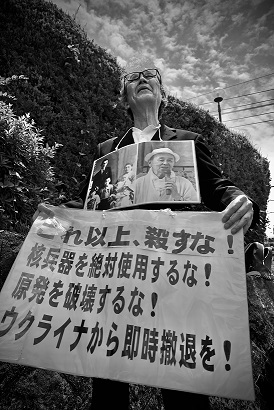 これ以上、殺すな!
核兵器を絶対使用するな!
原発を破壊するな!
ウクライナから即時撤退を!